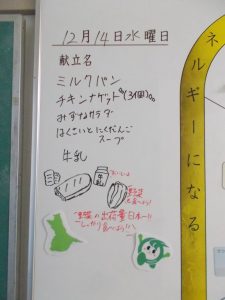 12月14日水曜日
献立名
ミルクパン
チキンナゲット(3個)
みずなサラダ
はくさいとにくだんご
スープ
牛乳
おいしいよ
野菜
も食べよう!!
"野菜"の出荷量日本一!!
しっかり食べよう!!
ネルギーになる